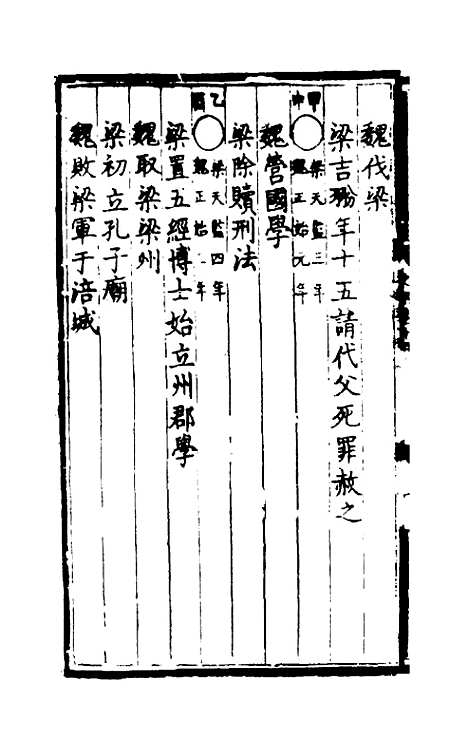 魏伐梁
梁吉翂年十五請代父死罪赦之
甲申
梁天監三年
魏正始元年
魏營國學
梁除贖刑法
乙酉
梁天監四年
魏正始二年
梁置五經博士始立州郡學
魏取梁梁州
梁初立孔子廟
魏敗梁軍于涪城